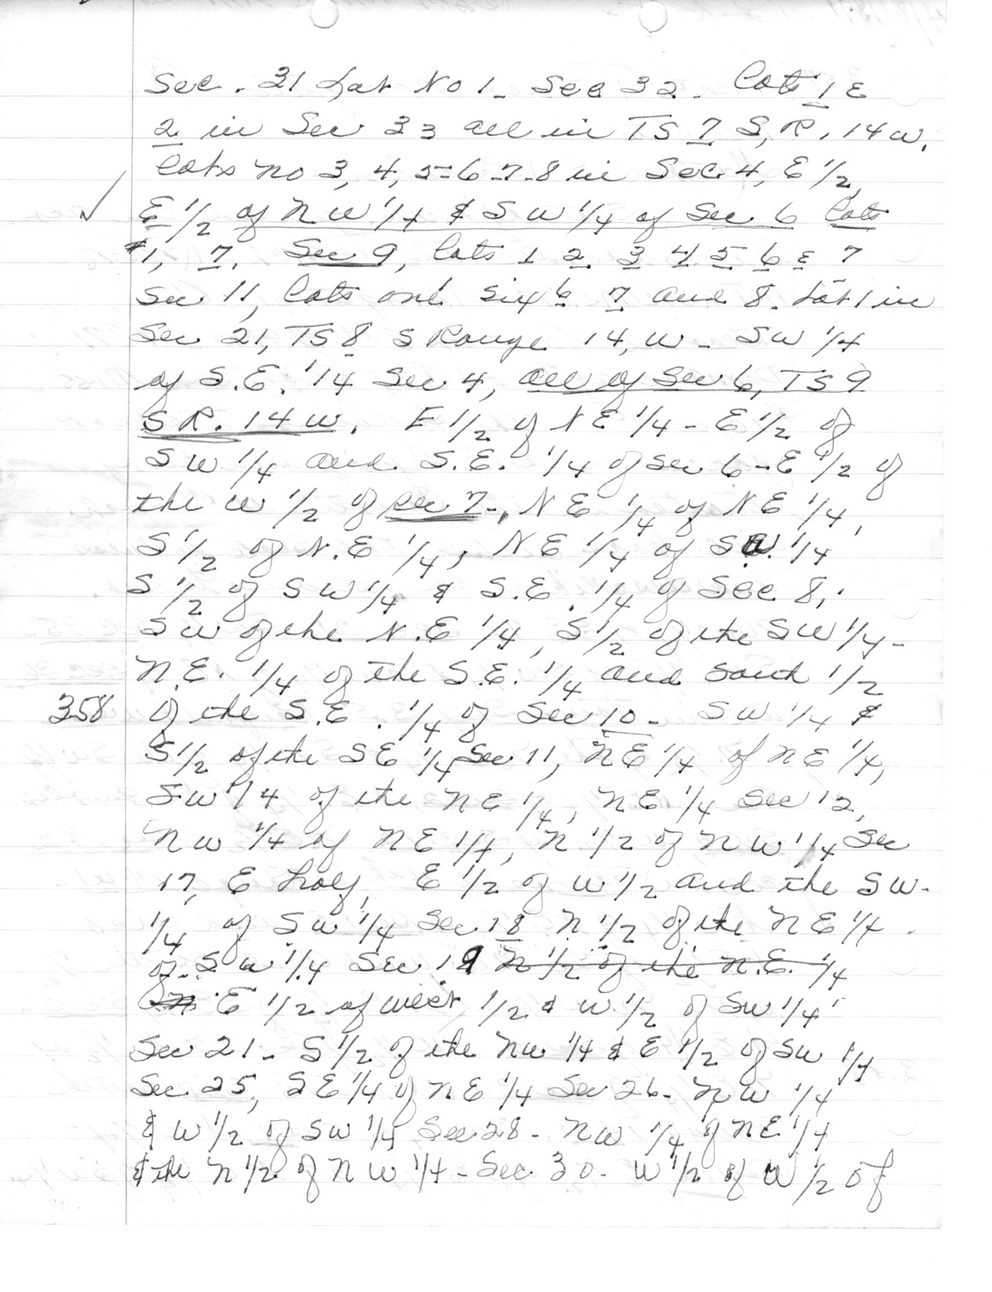 Sec. 31 Lot No 1 - Sec 32 - Lots 1 &
2 in Sec 33 all in TS 7 S, R, 14 W,
Lots No 3, 4, 5-6-7-8 in Sec 4, E 1/2,
E 1/2 of NW 1/4 & SW 1/4 of Sec 6 Lots
#1, 7, Sec 9, Lots 1 2 3 4 5 6 & 7
Sec 11, Lots one six 6 7 and 8. Lot 1 in
Sec 21, TS 8 S Range 14, W - SW 1/4
of S.E. 1/4 Sec 4, all of Sec 6, TS 9
S R. 14 W. E 1/2 of NE 1/4 - E 1/2 of
SW 1/4 and S.E. 1/4 of Sec 6 - E 1/2 of
the W 1/2 of Sec 7-, NE 1/4 of NE 1/4,
S 1/2 of N.E 1/4, NE 1/4 of SW. 1/4
S 1/2 of SW 1/4 & S.E. 1/4 of Sec 8,
SW of the N.E 1/4, S 1/2 of the SW 1/4 -
N.E. 1/4 of the S.E. 1/4 and South 1/2
358 of the S.E. 1/4 of Sec 10 - SW 1/4 &
S 1/2 of the SE 1/4 Sec 11, NE 1/4 of NE 1/4,
SW 1/4 of the NE 1/4, NE 1/4 Sec 12,
NW 1/4 of NE 1/4, N 1/2 of NW 1/4 Sec
17, E Half, E 1/2 of W 1/2 and the SW -
1/4 of SW 1/4 Sec 18 N 1/2 of the NE 1/4
of SW 1/4 Sec 19 N 1/2 of the N.E. 1/4
E 1/2 of West 1/2 & W 1/2 of SW 1/4
Sec 21 - S 1/2 of the NW 1/4 & E 1/2 of SW 1/4
Sec 25, SE 1/4 of NE 1/4 Sec 26 - NW 1/4
& W 1/2 of SW 1/4 Sec 28 - NW 1/4 of NE 1/4
& the N 1/2 of NW 1/4 - Sec 30 - W 1/2 of W 1/2 of